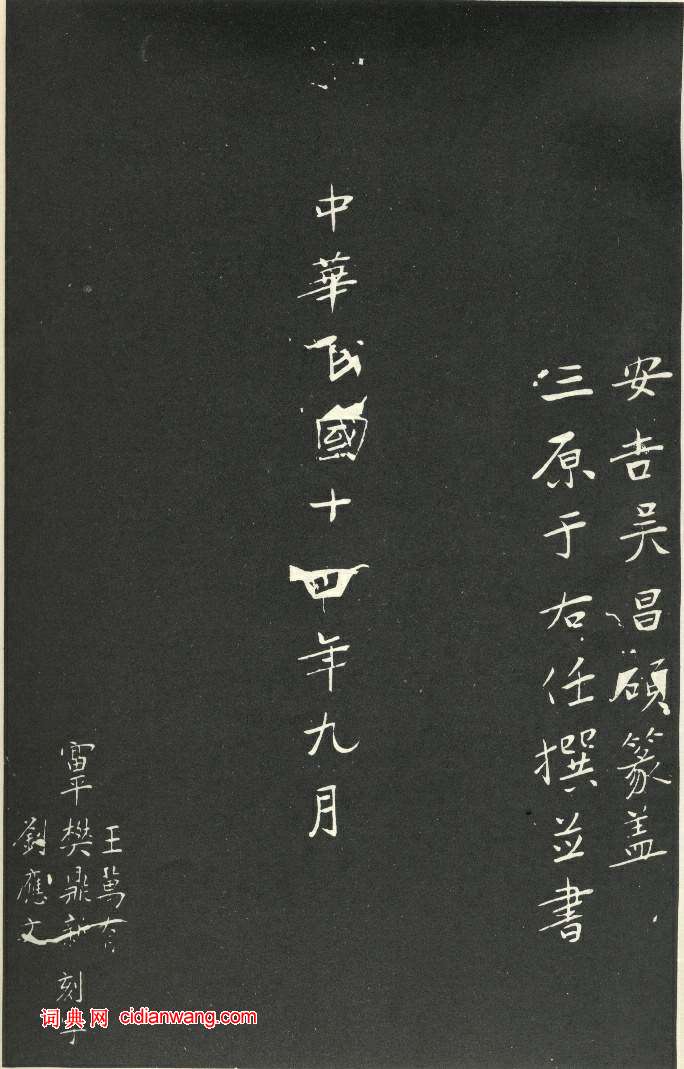 安吉吴昌碩篆盖
三原于右任撰並書
中華民國十四年九月
王萬育
富平樊鼎新刻字
劉應文
词典网 cidianwang.com